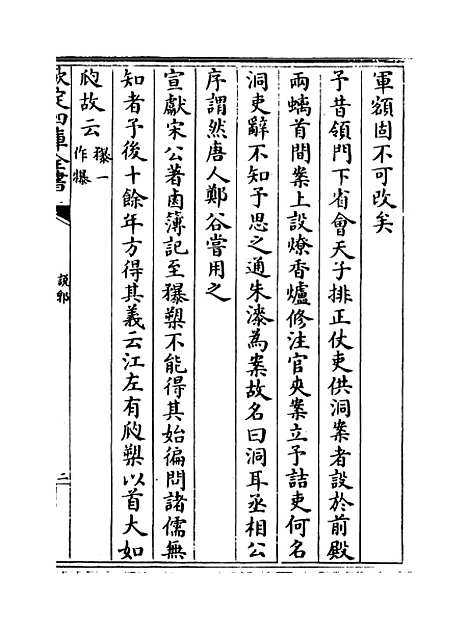 軍額固不可改矣
予昔領門下省會天子排正仗吏供洞案者設於前殿
兩螭首間案上設燎香爐修注官夾案立予詰吏何名
洞吏辭不知予思之通朱漆為案故名曰洞耳丞相公
序謂然唐人鄭谷嘗用之
宣獻宋公著鹵簿記至𤡔槊不能得其始徧問諸儒無
知者予後十餘年方得其義云江左有𤬪槊以首大如
𤬪故云𤡔一作爆
欽定四庫全書
說郛
二